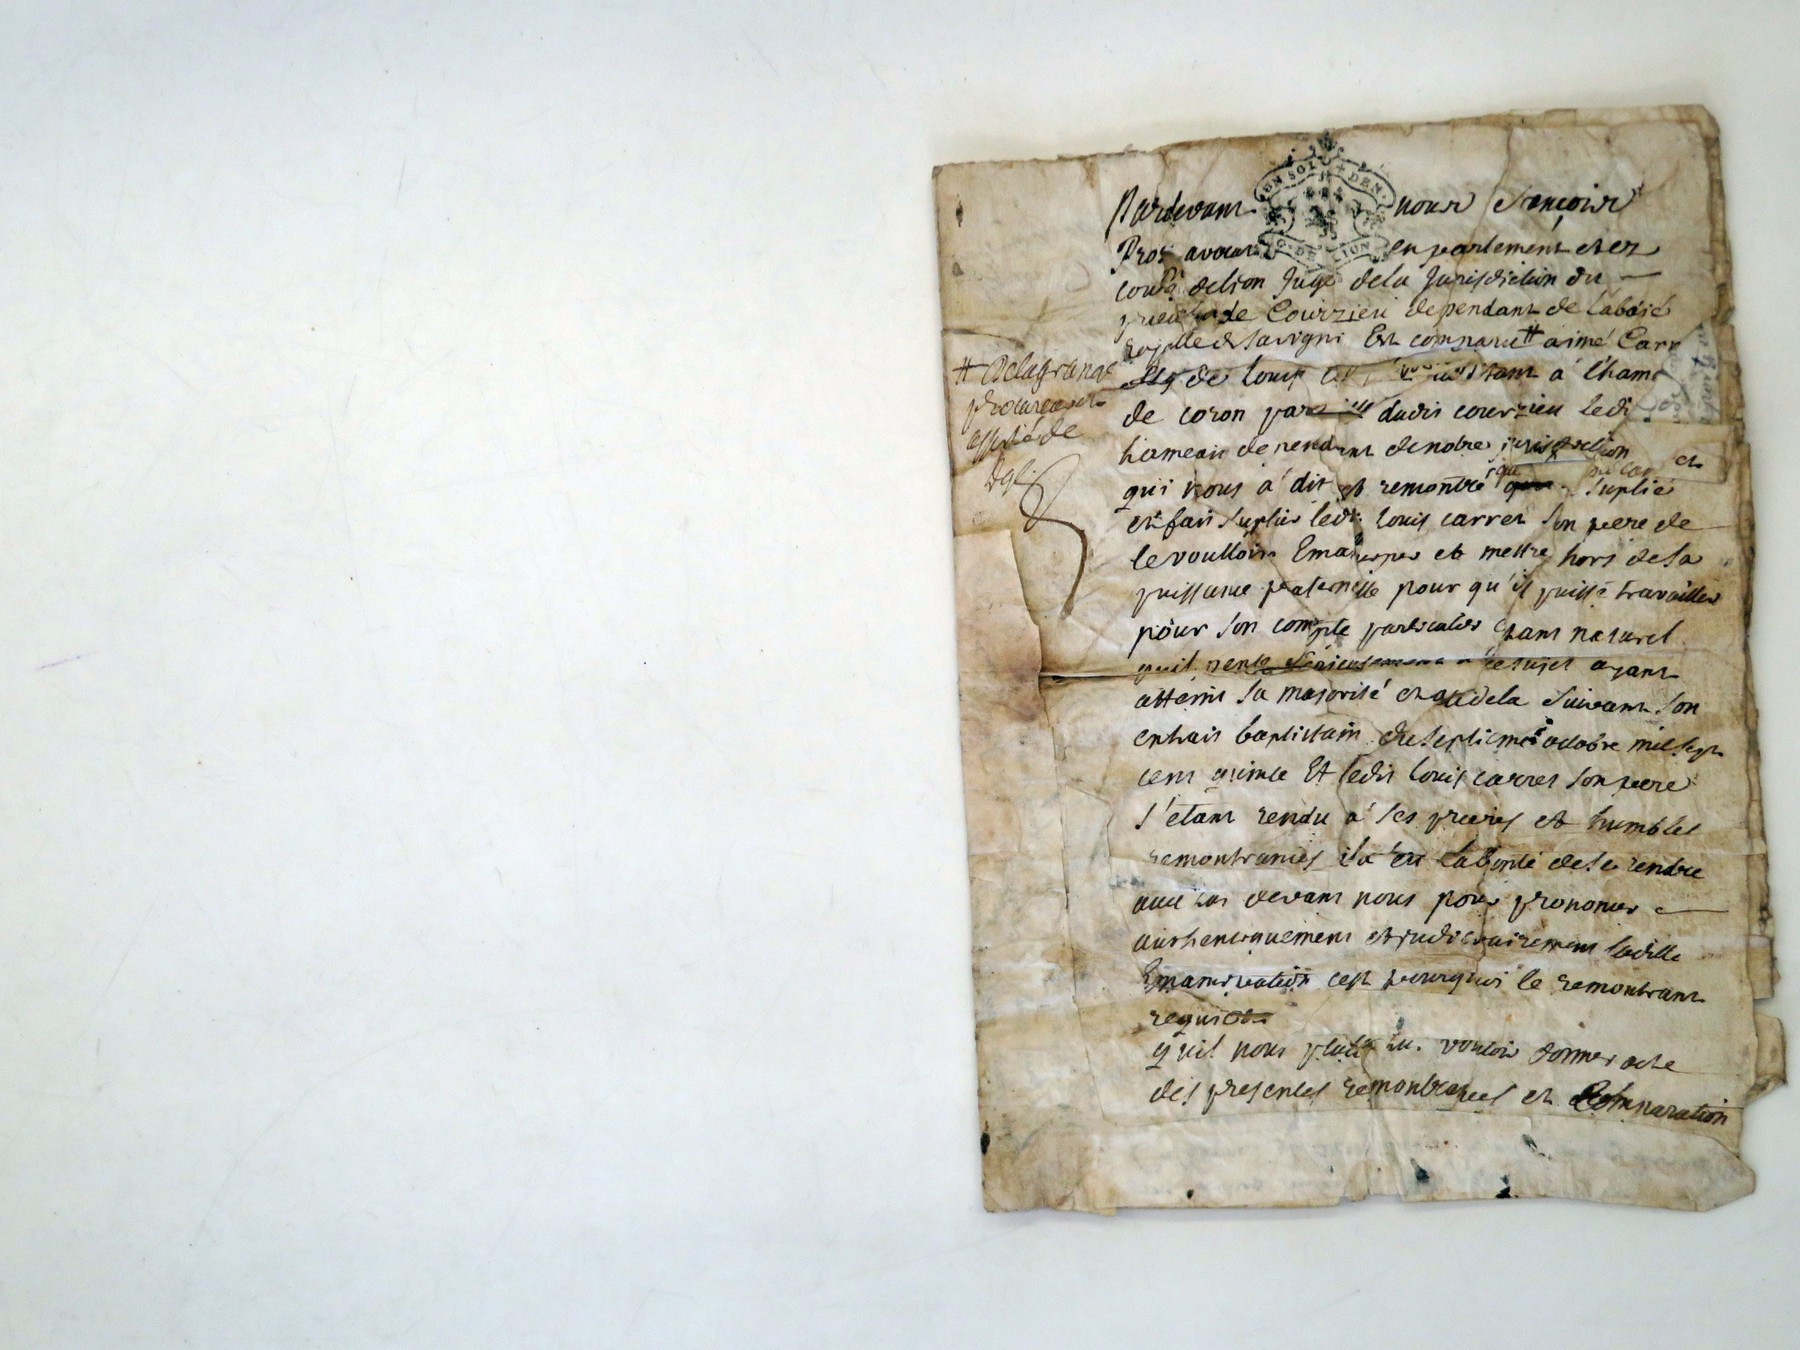 UN SOL DEN.
G. DE LION
Pardevant nous François
Pros avocat en parlement et ez
de lion Juge de la Jurisdiction du
de Courzieu dependant de labaie
royalle de Savigni Est comparu # aimé Carr
# Delagrange
procureur
assisté de
de louis a l'ham
de coron dudit courzieu ledi
hameau dependant de notre jurisdiction et
qui nous a dit et remontré suplié
et fait suplier ledt louis carret son pere de
le voulloir Emanciper et mettre hors de sa
puissance paternelle pour qu'il puisse travailler
pour son compte particulier
ce sujet ayant
atteint sa majorité et audela suivant son
extrait baptistaire du septieme octobre mil sept
cent quinze Et ledit louis carret son pere
s'étant rendu a ses prieres et humbles
remontrances il a eu la bonté de se rendre
devant nous pour prononcer
authentiquement et judiciairement ladite
Emancipation cest pourquoi le remontrant
requi
qu'il nous plaise vouloir donner acte
des presentes remontrances et comparation